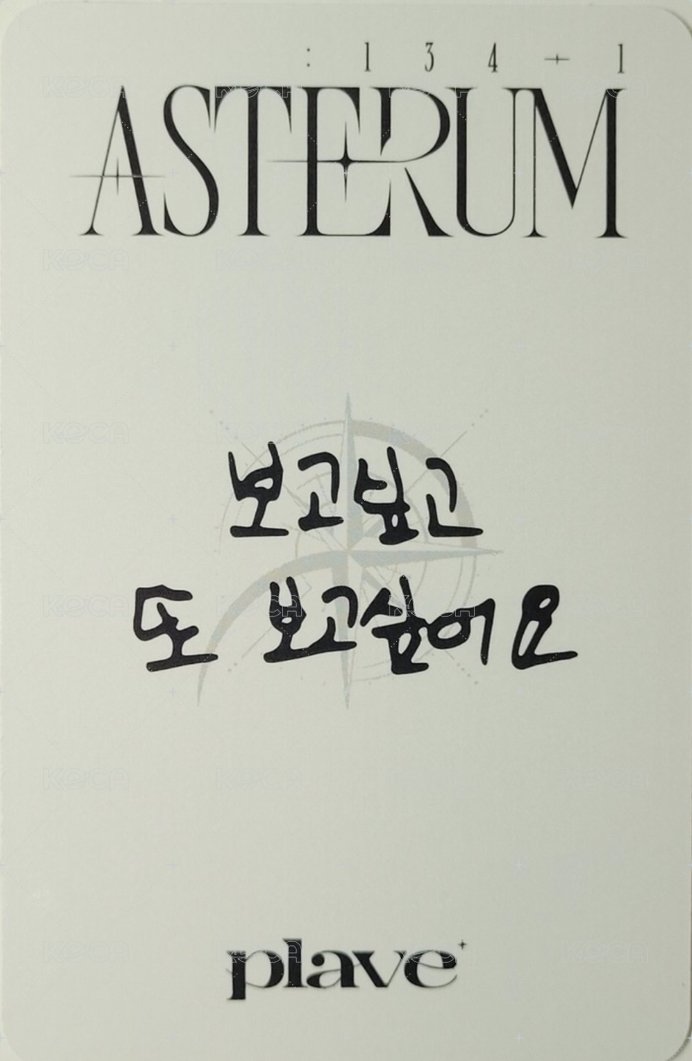 : 134-1
ASTERUM
보고싶고
또 보고싶어요
plave